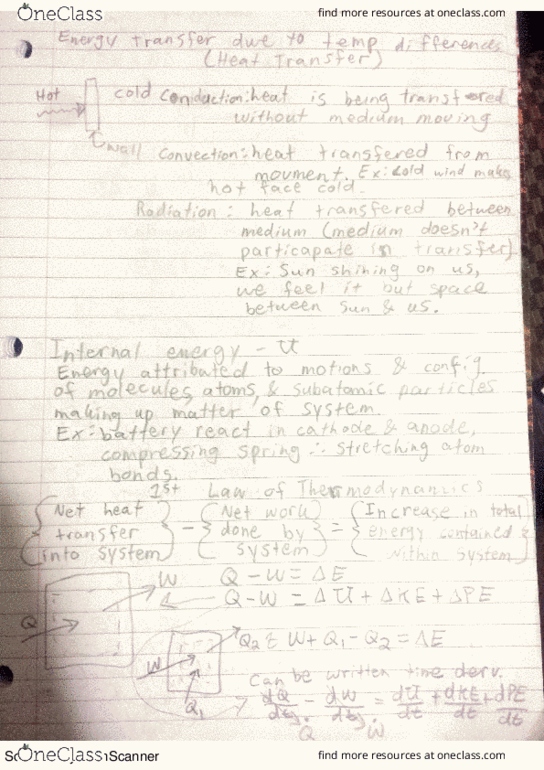 OneClass
find more resources at oneclass.com
Energy transfer due to temp differences
(Heat Transfer)
Hot
cold
wall
Conduction: heat is being transfered
without medium moving
Convection: heat transfered from
movment. Ex: Cold wind makes
hot face cold.
Radiation: heat transfered between
medium (medium doesn't
particapate in transfer)
Ex: Sun shining on us,
we feel it but space
between sun & us.
Internal energy - U
Energy attributed to motions & config.
of molecules, atoms, & subatomic particles
making up matter of system.
Ex: battery react in cathode & anode,
compressing spring ∴ stretching atom
bonds.
1st Law of Thermodynamics
{Net heat transfer into system} - {Net work done by system} = {Increase in total energy contained within system}
Q - W = ΔE
Q - W = ΔU + ΔKE + ΔPE
Q
W
Q2
W + Q1 - Q2 = ΔE
W
Q1
Can be written time derv.
dQ/dt - dW/dt = dU/dt + dKE/dt + dPE/dt
Q̇ Ẇ
OneClass
Scanner
find more resources at oneclass.com